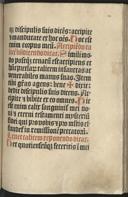 discipulis suis dicẽs: accipite
et manducate ex hoc oẽs. Hoc est
enim corpus meũ.
dicat. Simili mo
do postq̃ cenatũ est accipiens et
hũc calicem in sanctas ac
venerabiles manus suas. Item
tibi grãs agens: bene ✠ dixit:
dedit discipulis suis dicens. Ac
cipite et bibite ex eo omnes. Hic
est enim calix sanguinis mei no
vi et eterni testamenti mysteriũ
fidei qui pro vobis et pro multis ef
fundet in remissionem peccatorum.
calicem dicat.
Hec feceritis in mei